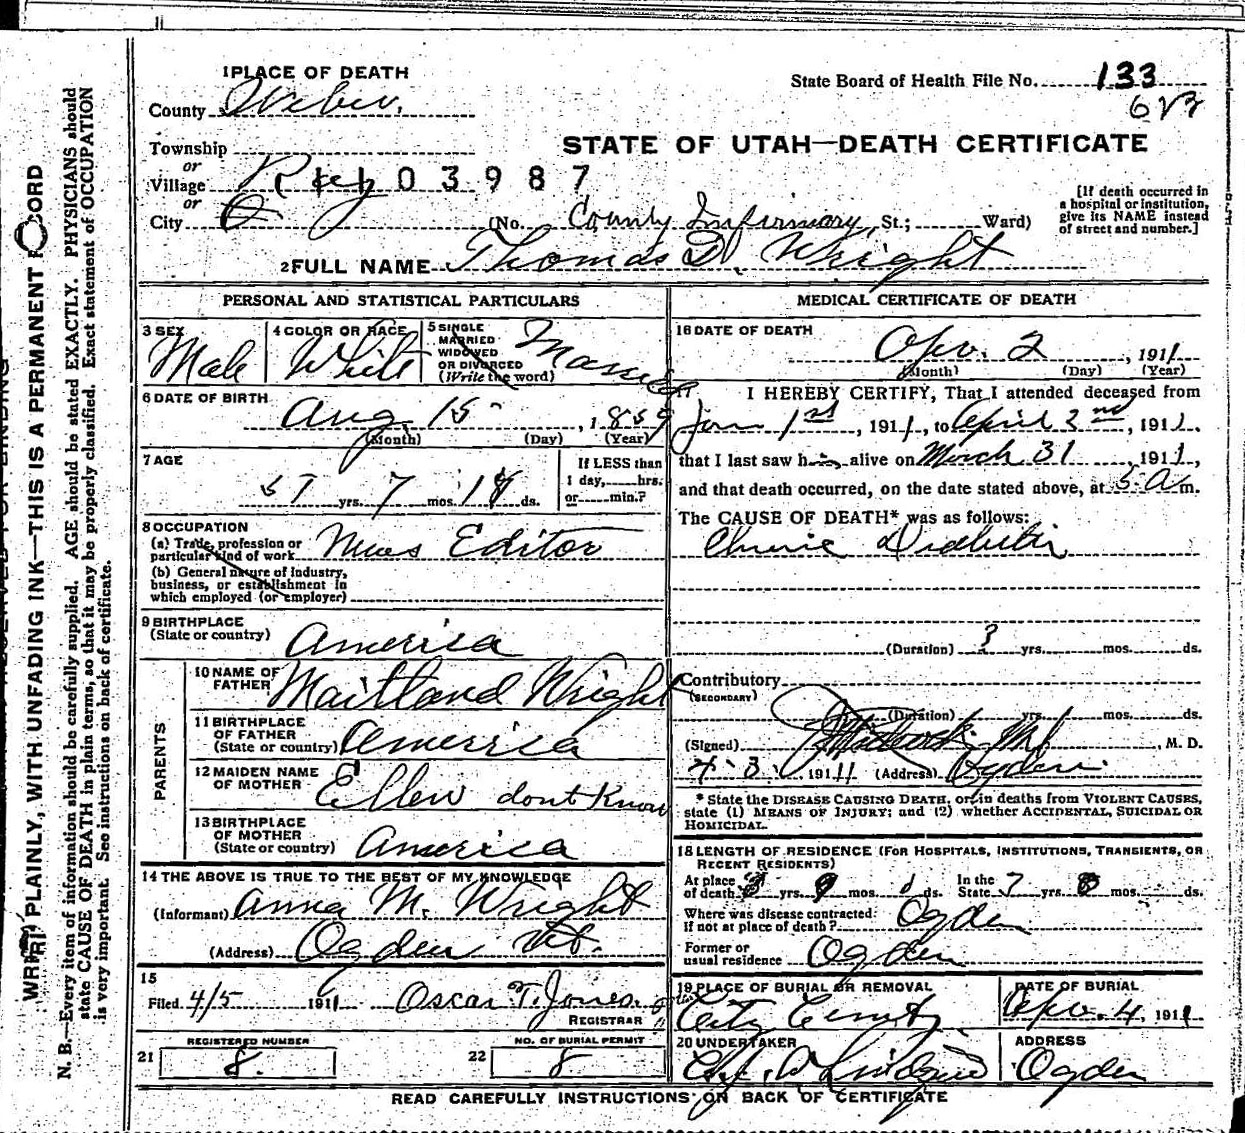 1 PLACE OF DEATH
State Board of Health File No. 133
County Weber.
Township
STATE OF UTAH—DEATH CERTIFICATE
or
Village Roy 03987
or
City
(No. County Infirmary, St.; Ward)
[If death occurred in a hospital or institution, give its NAME instead of street and number.]
2 FULL NAME Thomas D. Wright
PERSONAL AND STATISTICAL PARTICULARS
3 SEX Male
4 COLOR OR RACE White
5 SINGLE MARRIED WIDOWED OR DIVORCED (Write the word) Married
6 DATE OF BIRTH Aug. 15, 1859
(Month) (Day) (Year)
7 AGE
yrs. 7 mos. 18 ds.
If LESS than 1 day, hrs. or min.?
8 OCCUPATION
(a) Trade, profession or particular kind of work News Editor
(b) General nature of industry, business, or establishment in which employed (or employer)
9 BIRTHPLACE
(State or country) America
PARENTS
10 NAME OF FATHER Maitland Wright
11 BIRTHPLACE OF FATHER (State or country) America
12 MAIDEN NAME OF MOTHER Ellen dont Know
13 BIRTHPLACE OF MOTHER (State or country) America
14 THE ABOVE IS TRUE TO THE BEST OF MY KNOWLEDGE
(Informant) Anna M. Wright
(Address) Ogden Ut.
15
Filed 4/5 1911 Oscar T. Jones.
REGISTRAR
REGISTERED NUMBER
21 8.
NO. OF BURIAL PERMIT
22 8
MEDICAL CERTIFICATE OF DEATH
16 DATE OF DEATH
Apr. 2, 1911
(Month) (Day) (Year)
17 I HEREBY CERTIFY, That I attended deceased from
Jan 1st, 1911, to April 2nd, 1911.
that I last saw him alive on March 31, 1911,
and that death occurred, on the date stated above, at 5 A m.
The CAUSE OF DEATH* was as follows:
Chronic Diabetis
(Duration) 3 yrs. mos. ds.
Contributory
(SECONDARY)
(Duration) yrs. mos. ds.
(Signed) M.D., M. D.
4-3, 1911 (Address) Ogden
* State the DISEASE CAUSING DEATH, or, in deaths from VIOLENT CAUSES, state (1) MEANS OF INJURY; and (2) whether ACCIDENTAL, SUICIDAL OR HOMICIDAL.
18 LENGTH OF RESIDENCE (FOR HOSPITALS, INSTITUTIONS, TRANSIENTS, OR RECENT RESIDENTS)
At place of death yrs. 9 mos. 1 ds. In the State 7 yrs. 8 mos. ds.
Where was disease contracted if not at place of death? Ogden
Former or usual residence Ogden
19 PLACE OF BURIAL OR REMOVAL
City Cemty.
DATE OF BURIAL
Apr. 4, 1911
20 UNDERTAKER
ADDRESS
Ogden
READ CAREFULLY INSTRUCTIONS ON BACK OF CERTIFICATE
WRITE PLAINLY, WITH UNFADING INK—THIS IS A PERMANENT RECORD
N. B.—Every item of information should be carefully supplied. AGE should be stated EXACTLY. PHYSICIANS should
state CAUSE OF DEATH in plain terms, so that it may be properly classified. Exact statement of OCCUPATION
is very important. See instructions on back of certificate.